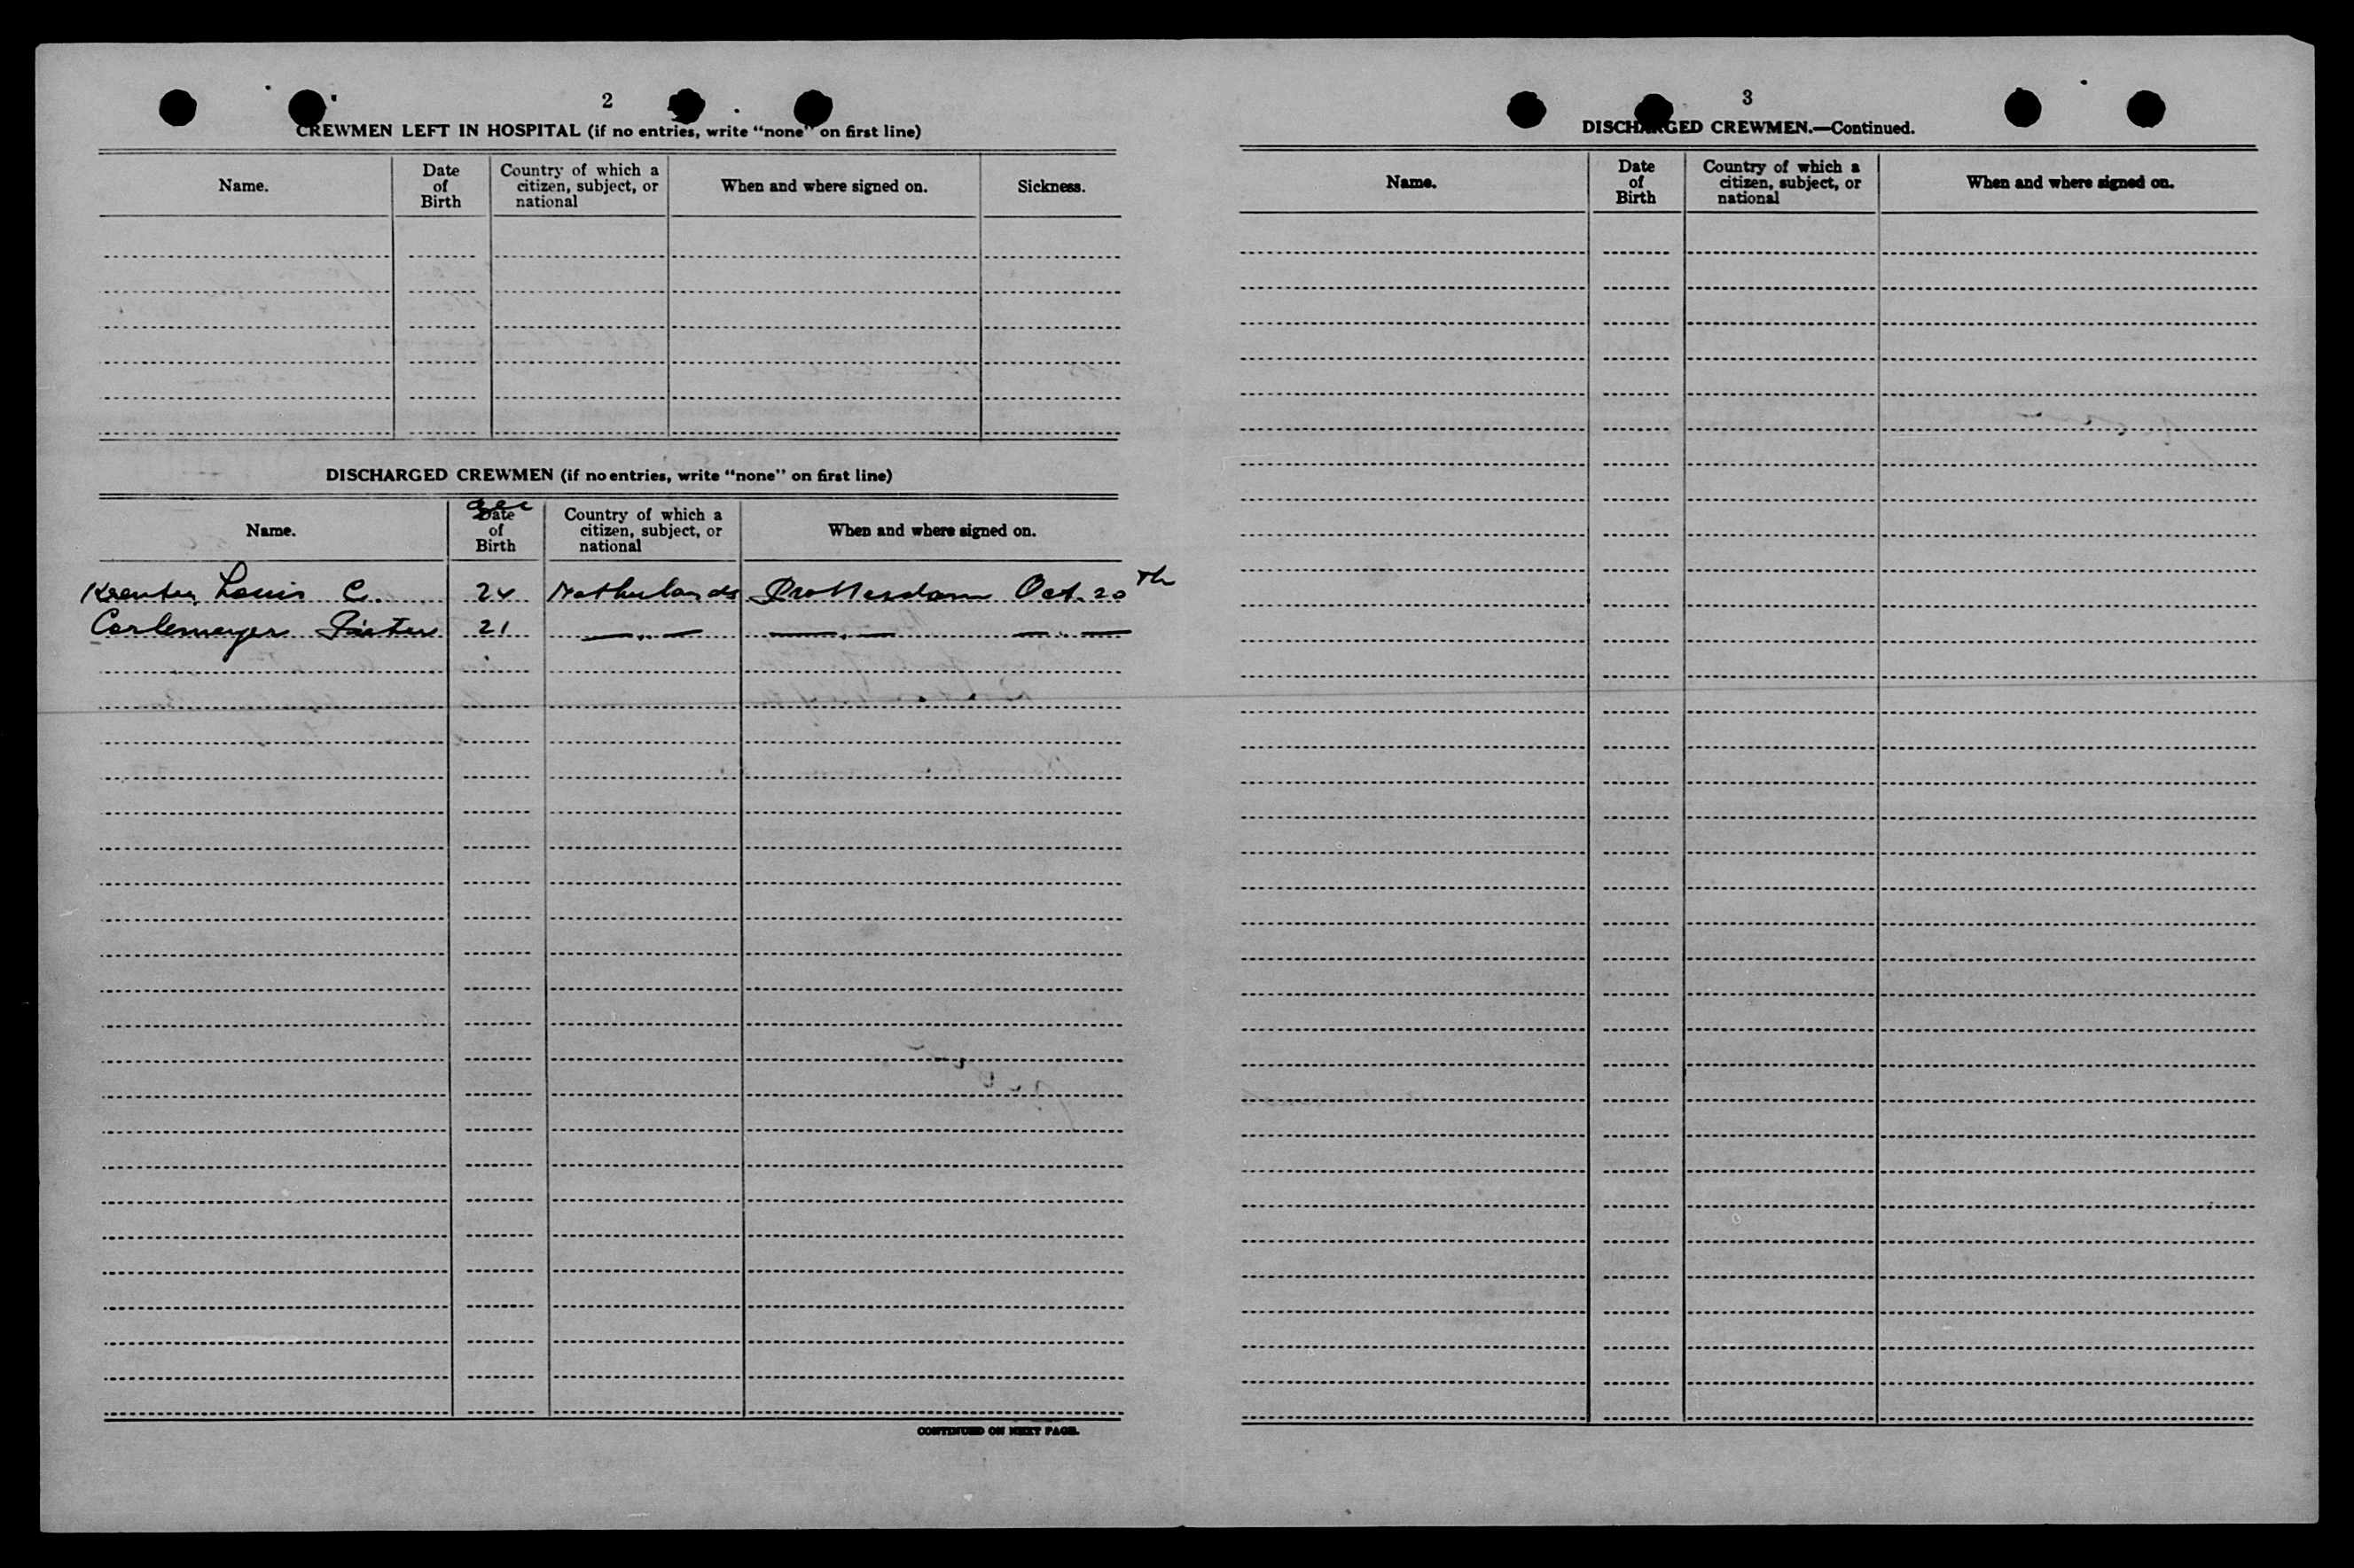 2
CREWMEN LEFT IN HOSPITAL (if no entries, write “none” on first line)
Name.
Date of Birth
Country of which a citizen, subject, or national
When and where signed on.
Sickness.
DISCHARGED CREWMEN (if no entries, write “none” on first line)
Name.
Date of Birth
Country of which a citizen, subject, or national
When and where signed on.
Louis C. 24 Netherlands Rotterdam Oct. 20th
Pieter 21 — „ — — „ — — „ —
CONTINUED ON NEXT PAGE.
3
DISCHARGED CREWMEN.—Continued.
Name.
Date of Birth
Country of which a citizen, subject, or national
When and where signed on.